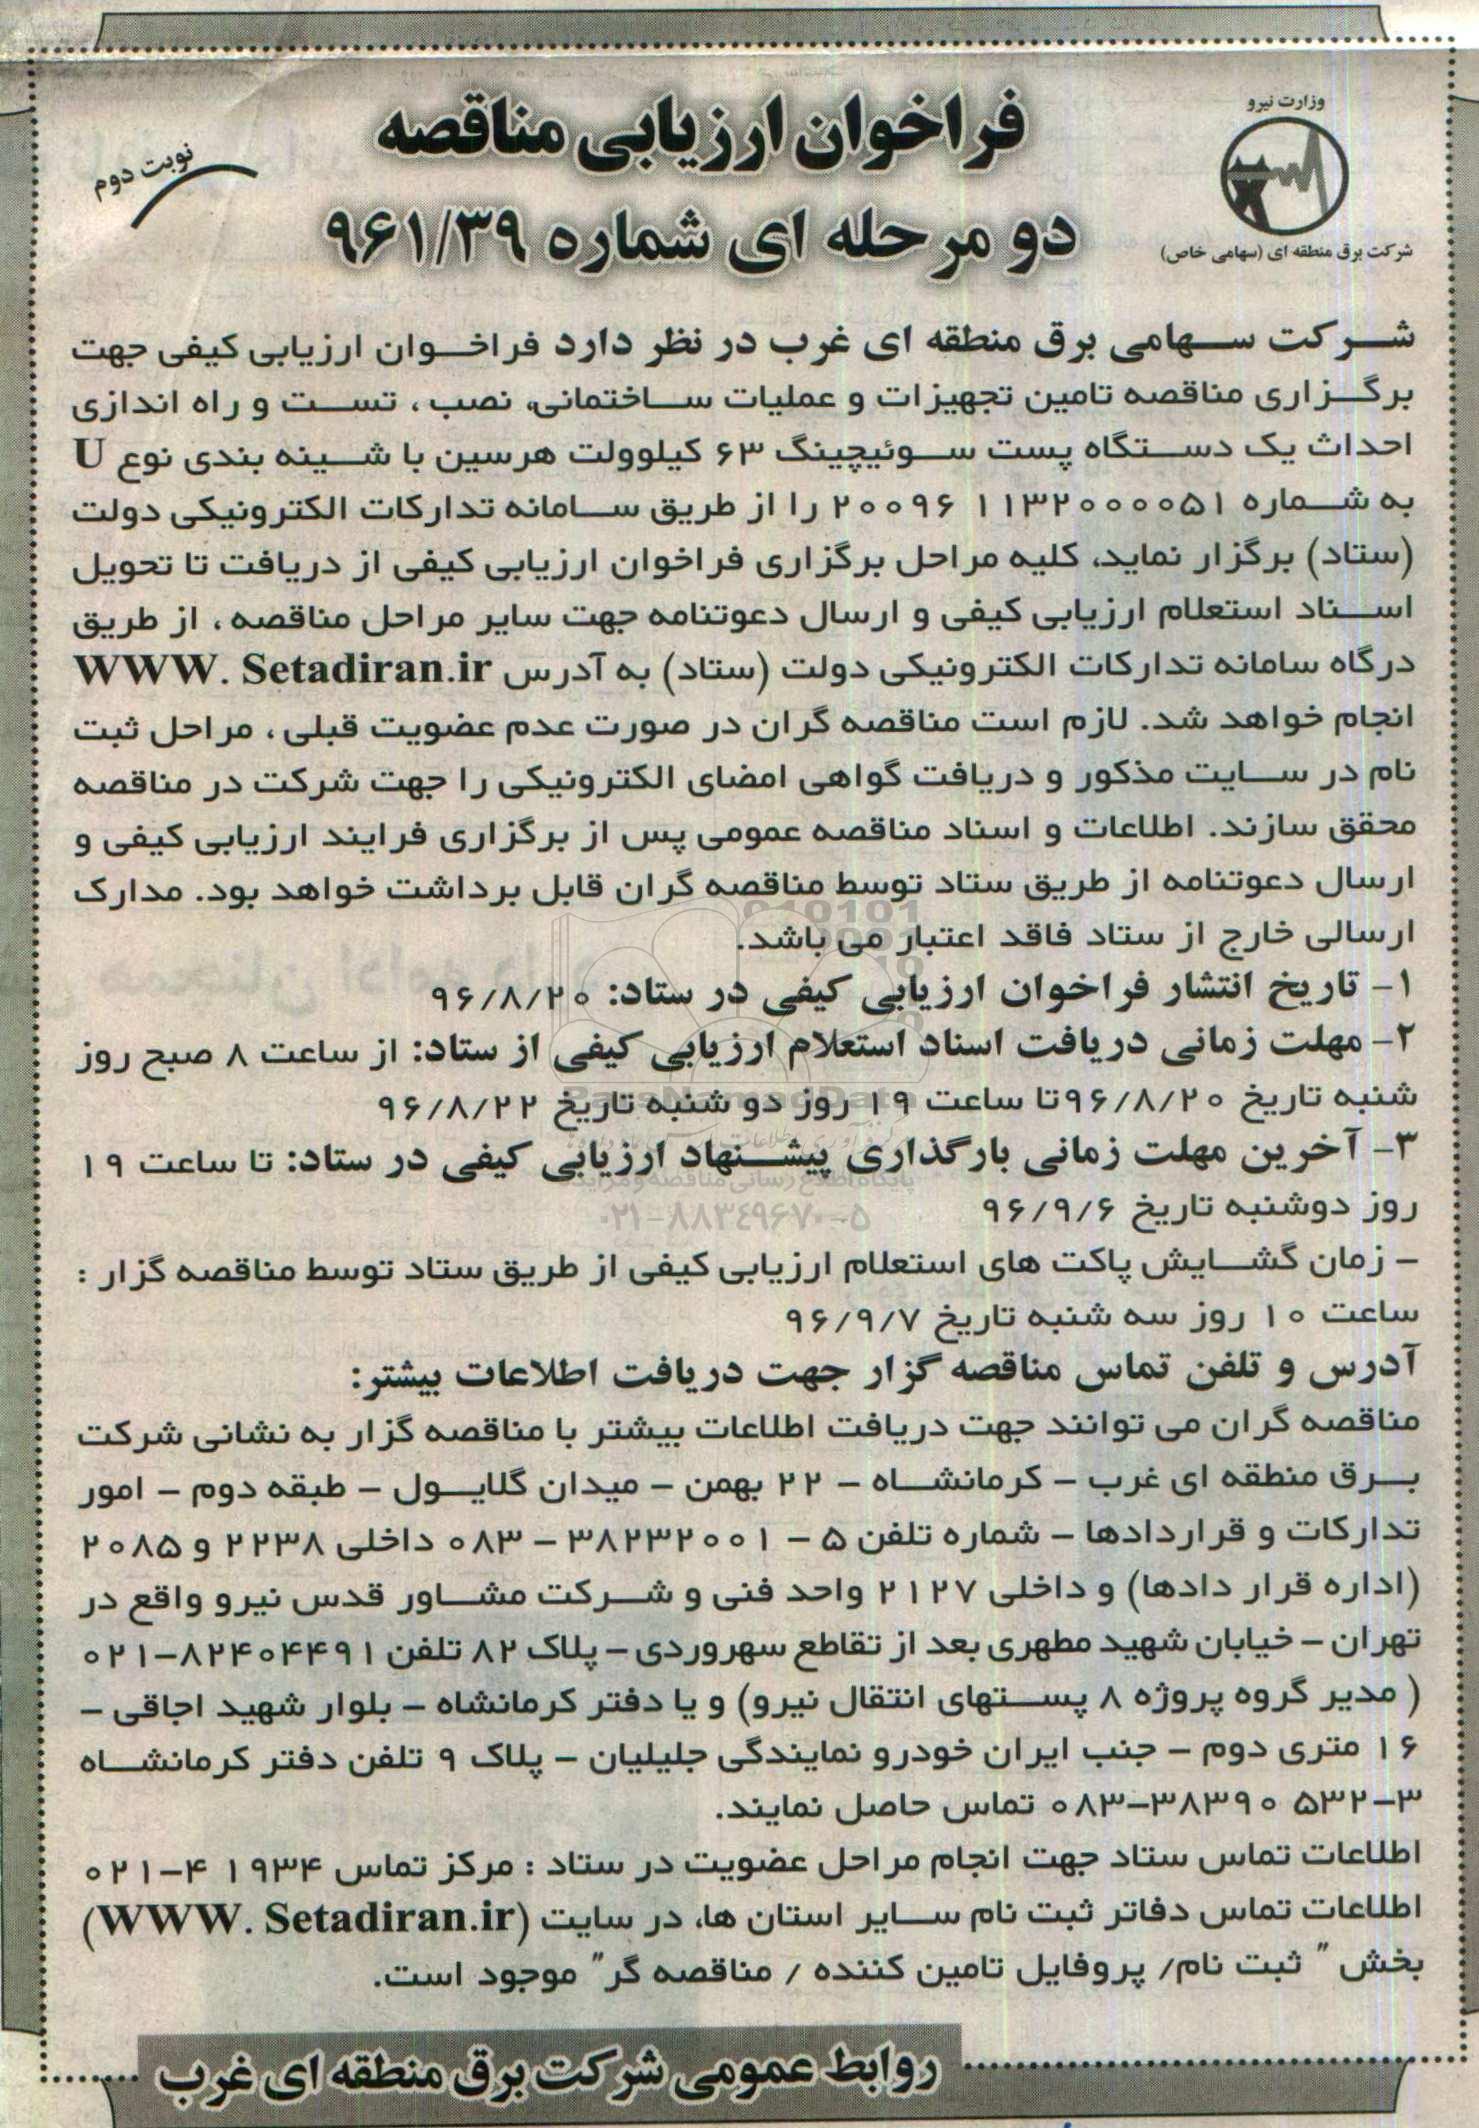 وزارت نیرو
شرکت برق منطقه ای (سهامی خاص)
نوبت دوم
فراخوان ارزیابی مناقصه
دو مرحله ای شماره ۹۶۱/۳۹
شرکت سهامی برق منطقه ای غرب در نظر دارد فراخوان ارزیابی کیفی جهت
برگزاری مناقصه تامین تجهیزات و عملیات ساختمانی، نصب ، تست و راه اندازی
احداث یک دستگاه پست سوئیچینگ ۶۳ کیلوولت هرسین با شینه بندی نوع U
به شماره ۲۰۰۹۶۰۱۱۳۲۰۰۰۰۵۱ را از طریق سامانه تدارکات الکترونیکی دولت
(ستاد) برگزار نماید، کلیه مراحل برگزاری فراخوان ارزیابی کیفی از دریافت تا تحویل
اسناد استعلام ارزیابی کیفی و ارسال دعوتنامه جهت سایر مراحل مناقصه ، از طریق
درگاه سامانه تدارکات الکترونیکی دولت (ستاد) به آدرس WWW. Setadiran.ir
انجام خواهد شد. لازم است مناقصه گران در صورت عدم عضویت قبلی ، مراحل ثبت
نام در سایت مذکور و دریافت گواهی امضای الکترونیکی را جهت شرکت در مناقصه
محقق سازند. اطلاعات و اسناد مناقصه عمومی پس از برگزاری فرایند ارزیابی کیفی و
ارسال دعوتنامه از طریق ستاد توسط مناقصه گران قابل برداشت خواهد بود. مدارک
ارسالی خارج از ستاد فاقد اعتبار می باشد.
۱- تاریخ انتشار فراخوان ارزیابی کیفی در ستاد: ۹۶/۸/۲۰
۲- مهلت زمانی دریافت اسناد استعلام ارزیابی کیفی از ستاد: از ساعت ۸ صبح روز
شنبه تاریخ ۹۶/۸/۲۰تا ساعت ۱۹ روز دو شنبه تاریخ ۹۶/۸/۲۲
پایگاه اطلاع رسانی مناقصه و مزایده
۳- آخرین مهلت زمانی بارگذاری پیشنهاد ارزیابی کیفی در ستاد: تا ساعت ۱۹
روز دوشنبه تاریخ ۹۶/۹/۶
۰۲۱-۸۸۳۴۹۶۷۰-۵
- زمان گشایش پاکت های استعلام ارزیابی کیفی از طریق ستاد توسط مناقصه گزار :
ساعت ۱۰ روز سه شنبه تاریخ ۹۶/۹/۷
آدرس و تلفن تماس مناقصه گزار جهت دریافت اطلاعات بیشتر:
مناقصه گران می توانند جهت دریافت اطلاعات بیشتر با مناقصه گزار به نشانی شرکت
برق منطقه ای غرب – کرمانشاه – ۲۲ بهمن – میدان گلایول – طبقه دوم – امور
تدارکات و قراردادها – شماره تلفن ۵ – ۳۸۲۳۲۰۰۱ – ۰۸۳ داخلی ۲۲۳۸ و ۲۰۸۵
(اداره قرار دادها) و داخلی ۲۱۲۷ واحد فنی و شرکت مشاور قدس نیرو واقع در
تهران – خیابان شهید مطهری بعد از تقاطع سهروردی – پلاک ۸۲ تلفن ۸۲۴۰۴۴۹۱–۰۲۱
( مدیر گروه پروژه ۸ پستهای انتقال نیرو) و یا دفتر کرمانشاه – بلوار شهید اجاقی –
۱۶ متری دوم – جنب ایران خودرو نمایندگی جلیلیان – پلاک ۹ تلفن دفتر کرمانشاه
۳–۰۸۳–۳۸۳۹۰۵۳۲ تماس حاصل نمایند.
اطلاعات تماس ستاد جهت انجام مراحل عضویت در ستاد : مرکز تماس ۴۱۹۳۴–۰۲۱
اطلاعات تماس دفاتر ثبت نام سایر استان ها، در سایت (WWW. Setadiran.ir)
بخش " ثبت نام/ پروفایل تامین کننده / مناقصه گر" موجود است.
روابط عمومی شرکت برق منطقه ای غرب